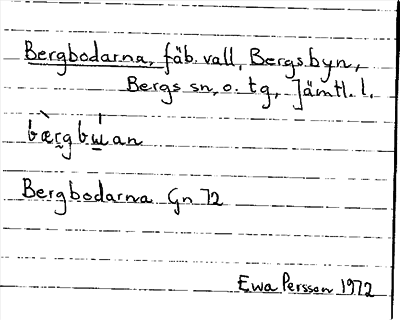 Bergbodarna, fäb. vall, Bergsbyn,
Bergs sn, o. tg, Jämtl. l.
bæ̀rgbu̲an
Bergbodarna Gn 72
Ewa Persson 1972